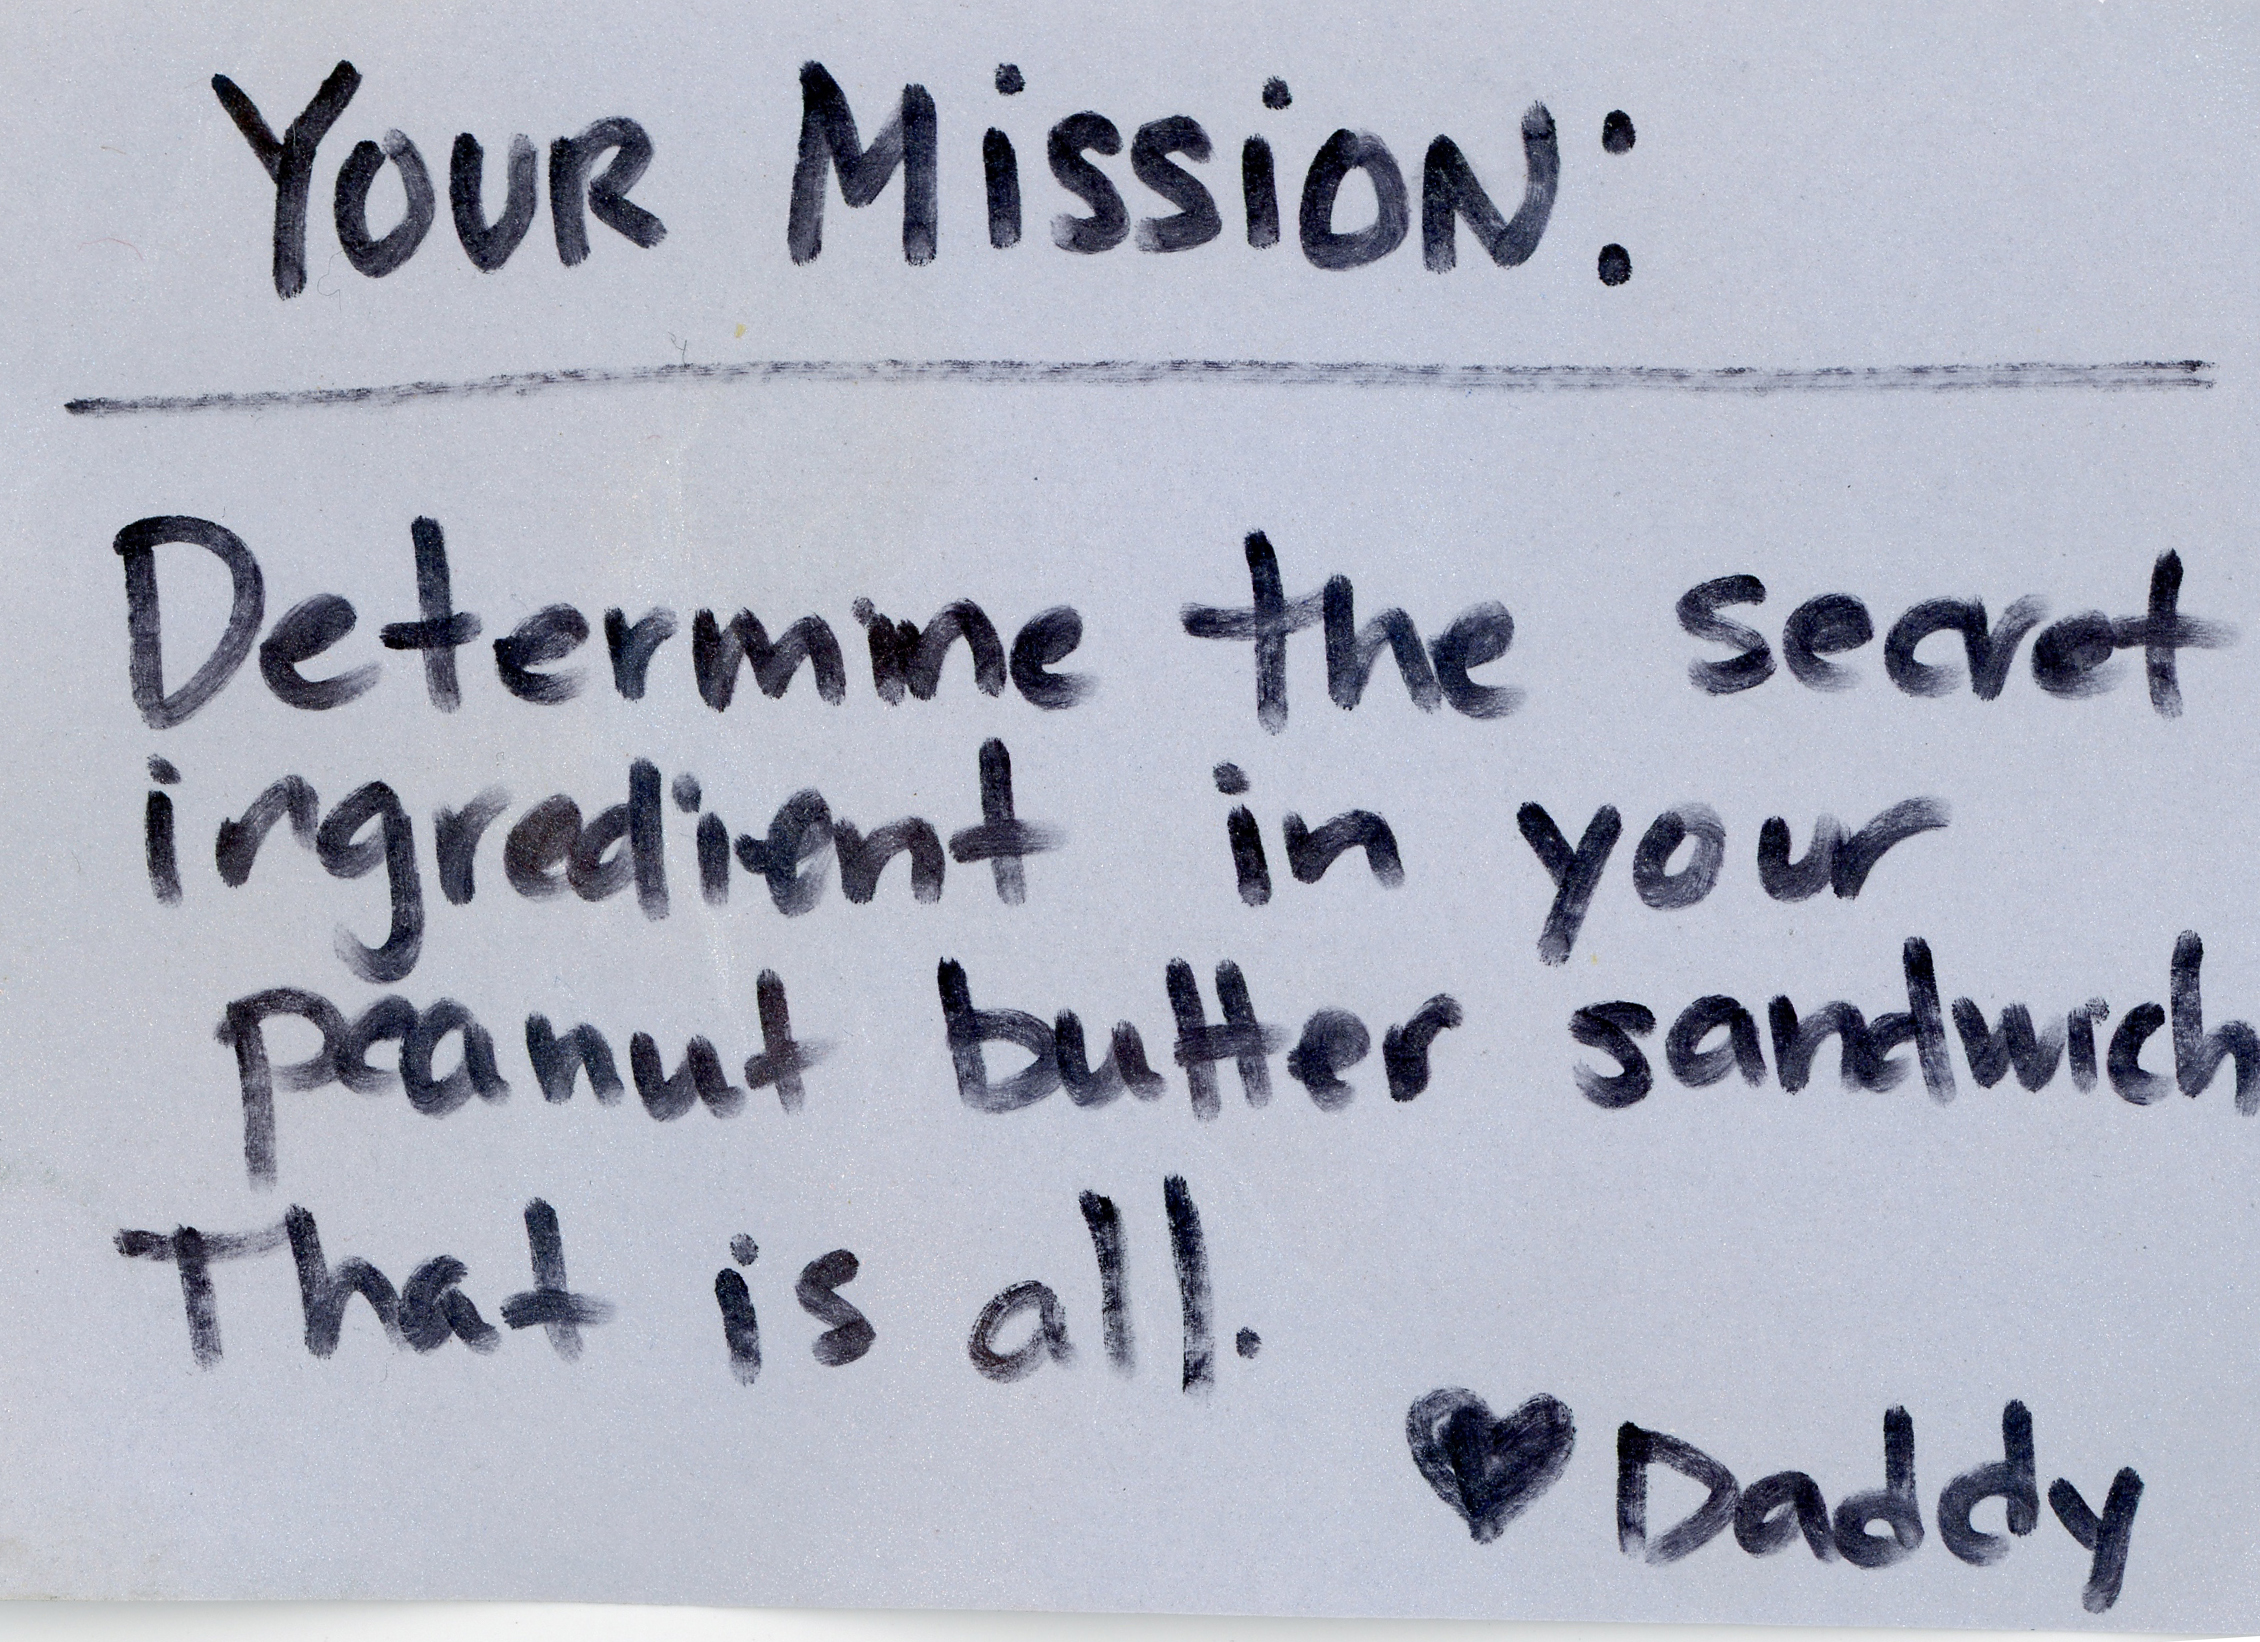 Your Mission:
Determine the secret
ingredient in your
peanut butter sandwich
That is all.
♥ Daddy